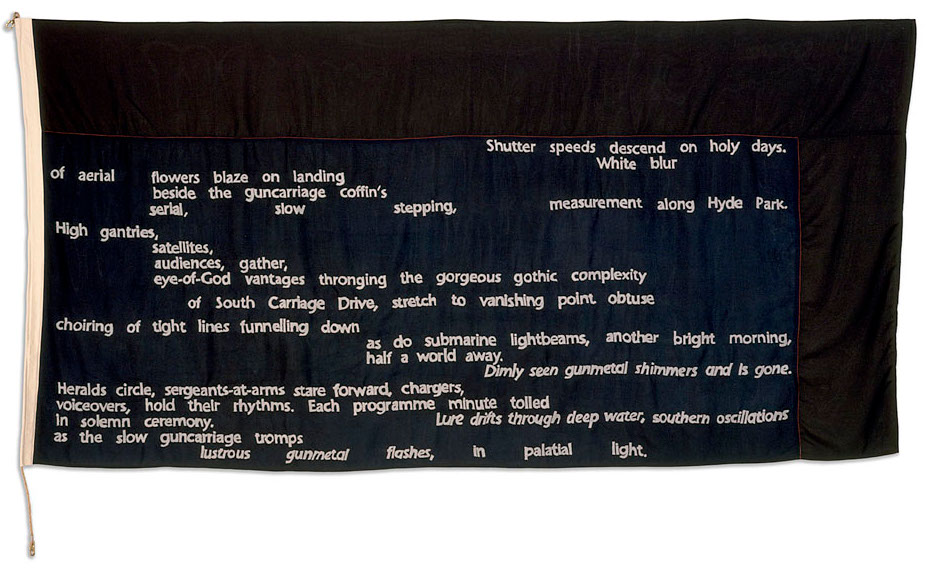 Shutter speeds descend on holy days.
White blur
of aerial flowers blaze on landing
beside the guncarriage coffin's
serial, slow stepping, measurement along Hyde Park.
High gantries,
satellites,
audiences, gather,
eye-of-God vantages thronging the gorgeous gothic complexity
of South Carriage Drive, stretch to vanishing point obtuse
choiring of tight lines funnelling down
as do submarine lightbeams, another bright morning,
half a world away.
Dimly seen gunmetal shimmers and is gone.
Heralds circle, sergeants-at-arms stare forward, chargers,
voiceovers, hold their rhythms. Each programme minute tolled
in solemn ceremony. Lure drifts through deep water, southern oscillations
as the slow guncarriage tromps
lustrous gunmetal flashes, in palatial light.